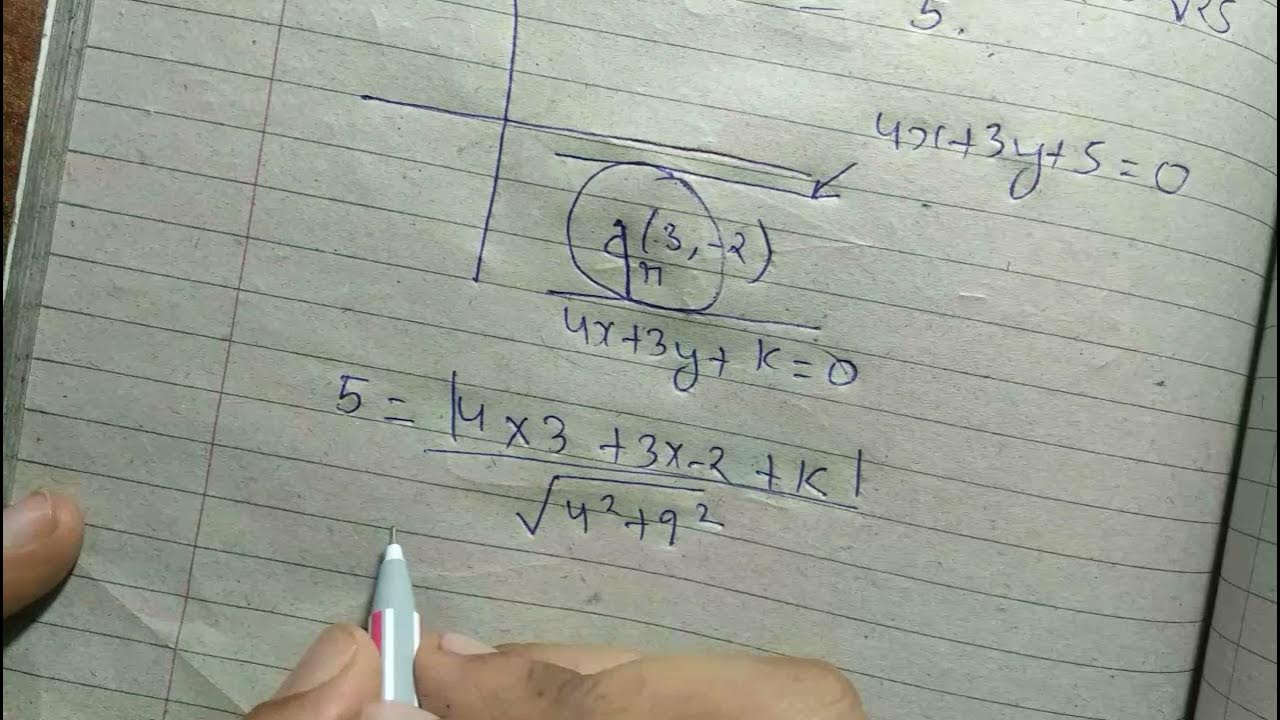 5.
√25
4x+3y+5=0
(3,-2)
r
4x+3y+k=0
5 = |4×3+3x-2+k|
√4²+9²